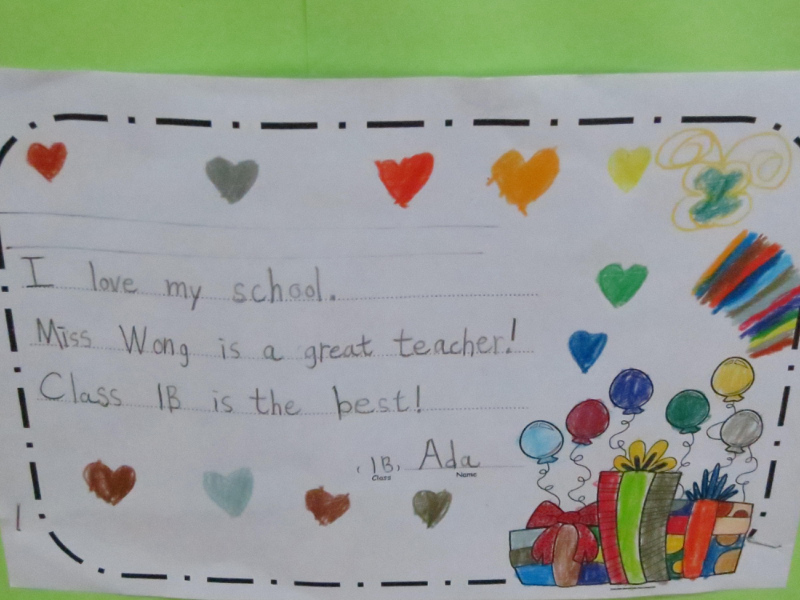 I love my school.
Miss Wong is a great teacher!
Class 1B is the best!
(1B) Ada
Class Name